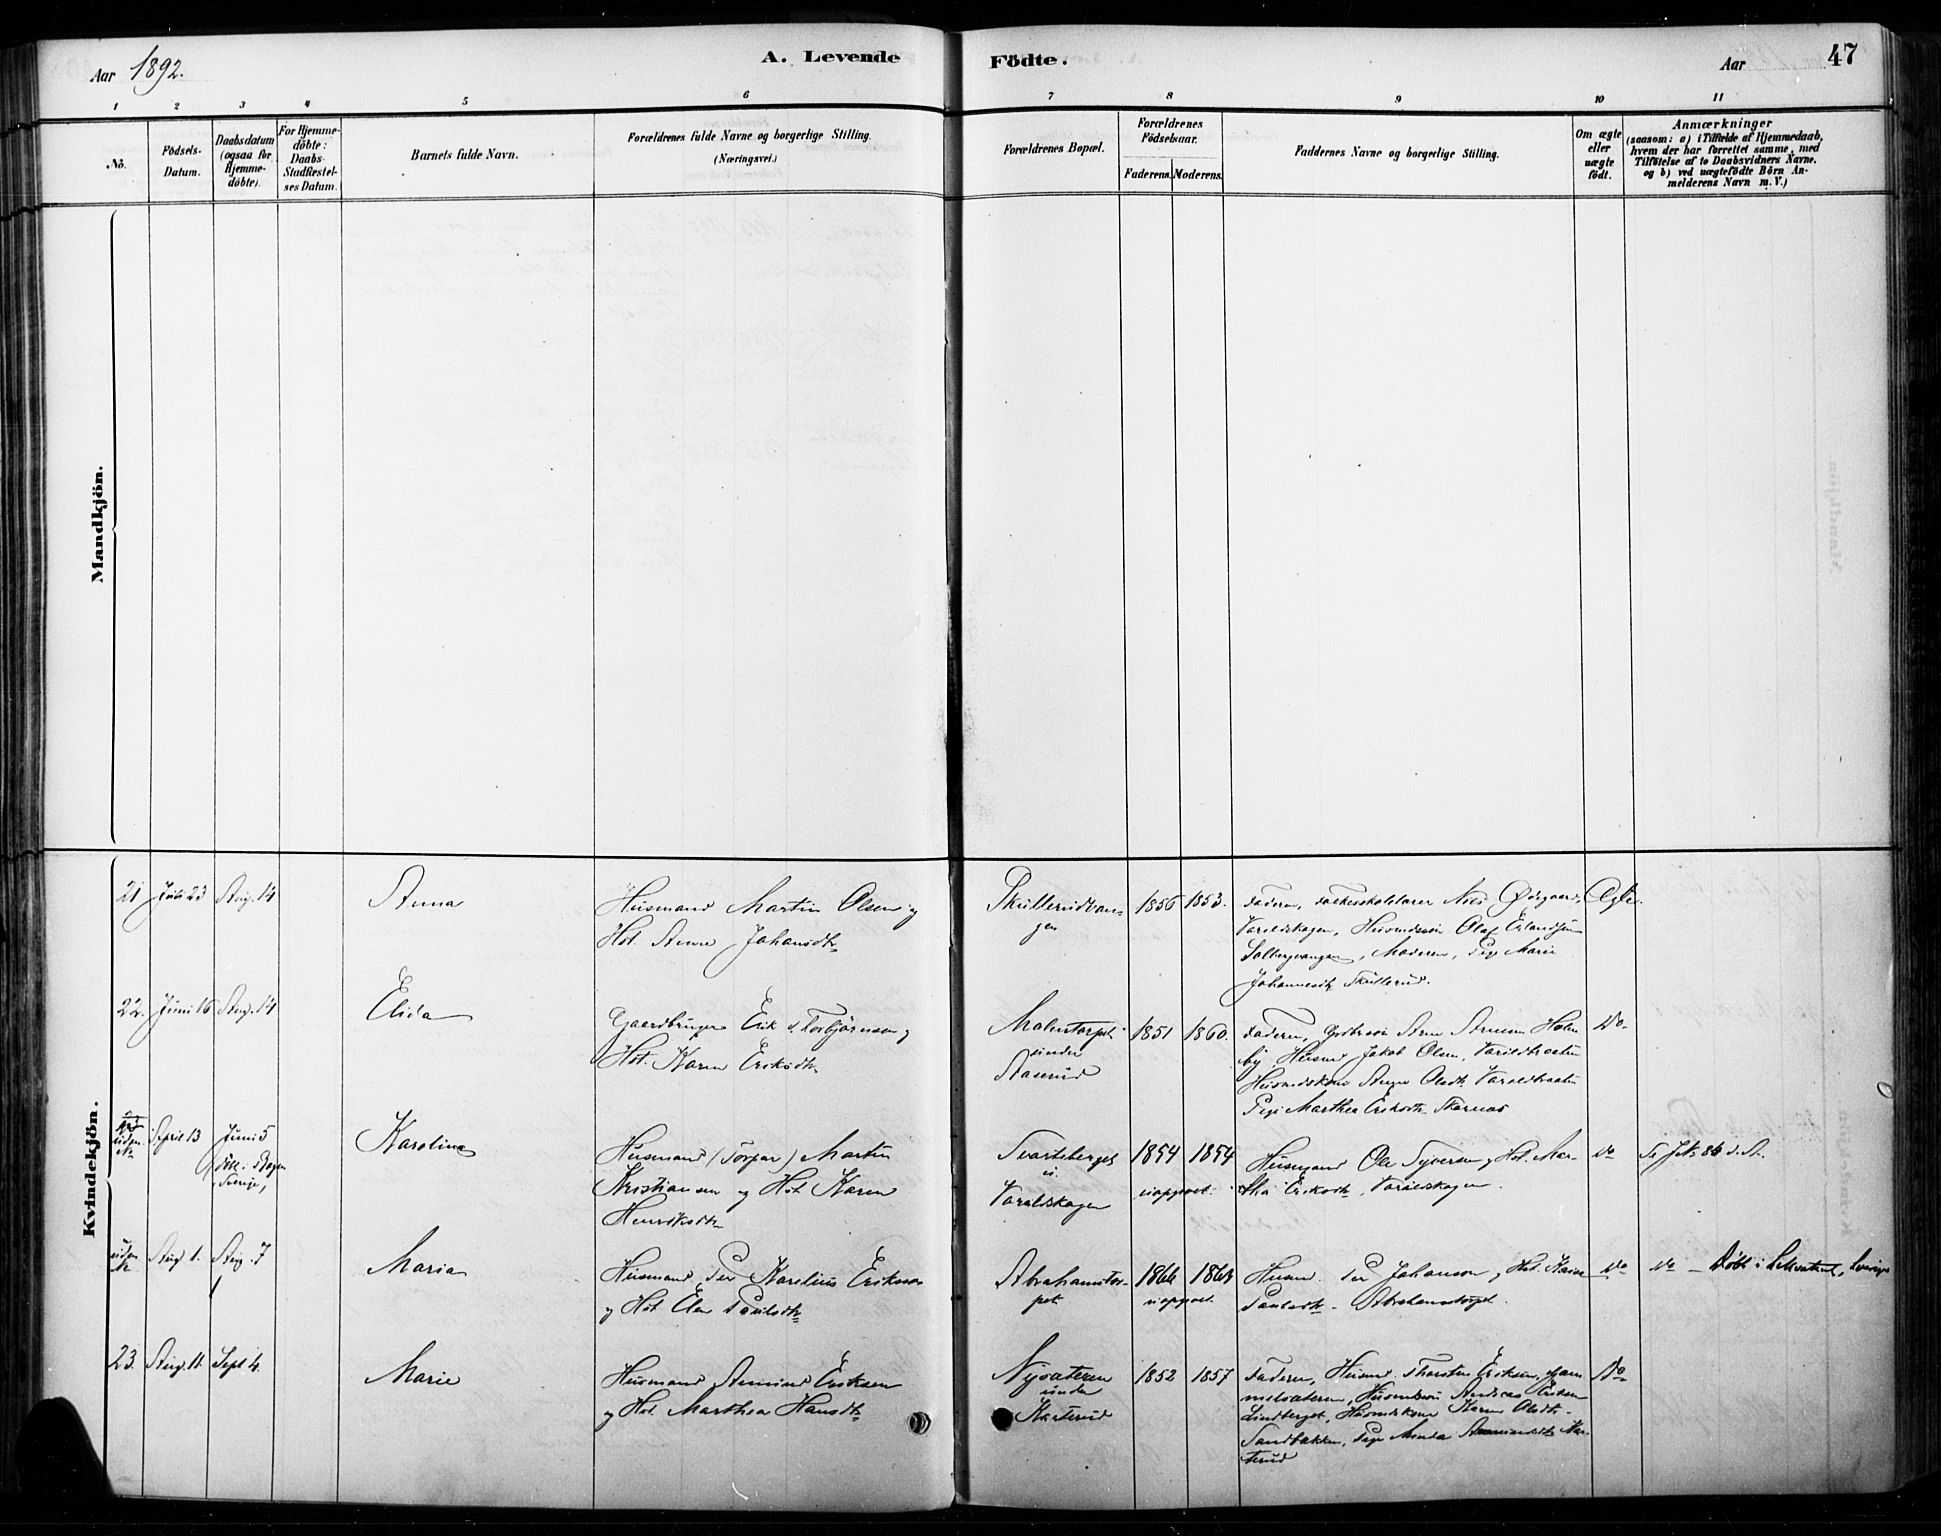 Aar 1892.
A. Levende
Födte.
Aar
47
1 2 3 4 5 6 7 8 9 10 11
No.
Födsels-
Datum.
Daabsdatum
(ogsaa for
Hjemme-
döbte).
For Hjemme-
döbte:
Daabs-
Stadfæstel-
ses Datum.
Barnets fulde Navn.
Forældrenes fulde Navne og borgerlige Stilling.
(Næringsvei.)
Forældrenes Bopæl.
Forældrenes
Födselsaar.
Faderens. Moderens.
Faddernes Navne og borgerlige Stilling.
Om ægte
eller
uægte
födt.
Anmærkninger
(saasom: a) i Tilfælde af Hjemmedaab,
hvem der har forrettet samme, med
Tilföielse af to Daabsvidners Navne,
og b) ved uægtefödte Börn An-
melderens Navn m. V.)
Mandkjön.
Kvindekjön.
21 Juli 23 Aug. 14
Anna
Husmand Martin Olsen og
Hst. Anne Johansdtr
Skullerudvan-
gen
1856 1853.
Faderen, Folkeskolelærer Nils Ødegaard,
Varaldskogen, Husmdssøn Olaf Erlandsen
Solbergvangen, Moderen, Pige Marie
Johannesdtr Skullerud.
Ægte.
22. Juni 16 Aug. 14
Elida
Gaardbruger Erik Torbjørnsen og
Hst. Karen Eriksdtr
Malmtorpet
under
Aaserud
1851 1860.
Faderen, Gdbrssøn Arne Arnesen Holm-
by, Husmd Jakob Olsen, Varaldbraaten
Husmdskone Anne Olsdtr Varaldbraaten
Pige Marthea Eriksdtr Skarnæs
Do
uden
No
April 13 Juni 5
Döbt i Bogen
Sverige,
Karolina
Husmand (Torpar) Martin
Kristiansen og Hst. Karen
Henriksdtr
Svarteberget
u.
Varaldskogen
1854 1854
uopgivet.
Husmand Ole Syversen og Hst. Mar-
tha Eriksdtr, Varaldskogen.
Do
Se J.No 86 d. A.
uden
No
Aug 1. Aug. 7
Maria
Husmand Per Karelius Eriksen
og Hst. Elen Paulsdtr
Abrahamstor-
pet
1866 1863
uopgivet.
Husm. Per Johanson og Hst. Kaisa
Paulsdtr Abrahamstorpet.
Do
Do Döbt i Sverige
23. Aug. 11. Sept 4.
Marie
Husmand Amund Eriksen
og Hst. Marthea Hansdtr
Nysæteren
under
Karterud
1852 1857
Faderen, Husmd. Thorsten Eriksen, Gam-
melsæteren, Husmdssøn Andreas Eriksen
Lindberget, Husmdskone Karen Olsdtr
Sandbakken, Pige Minda Amundsdtr Kar-
terud
Do